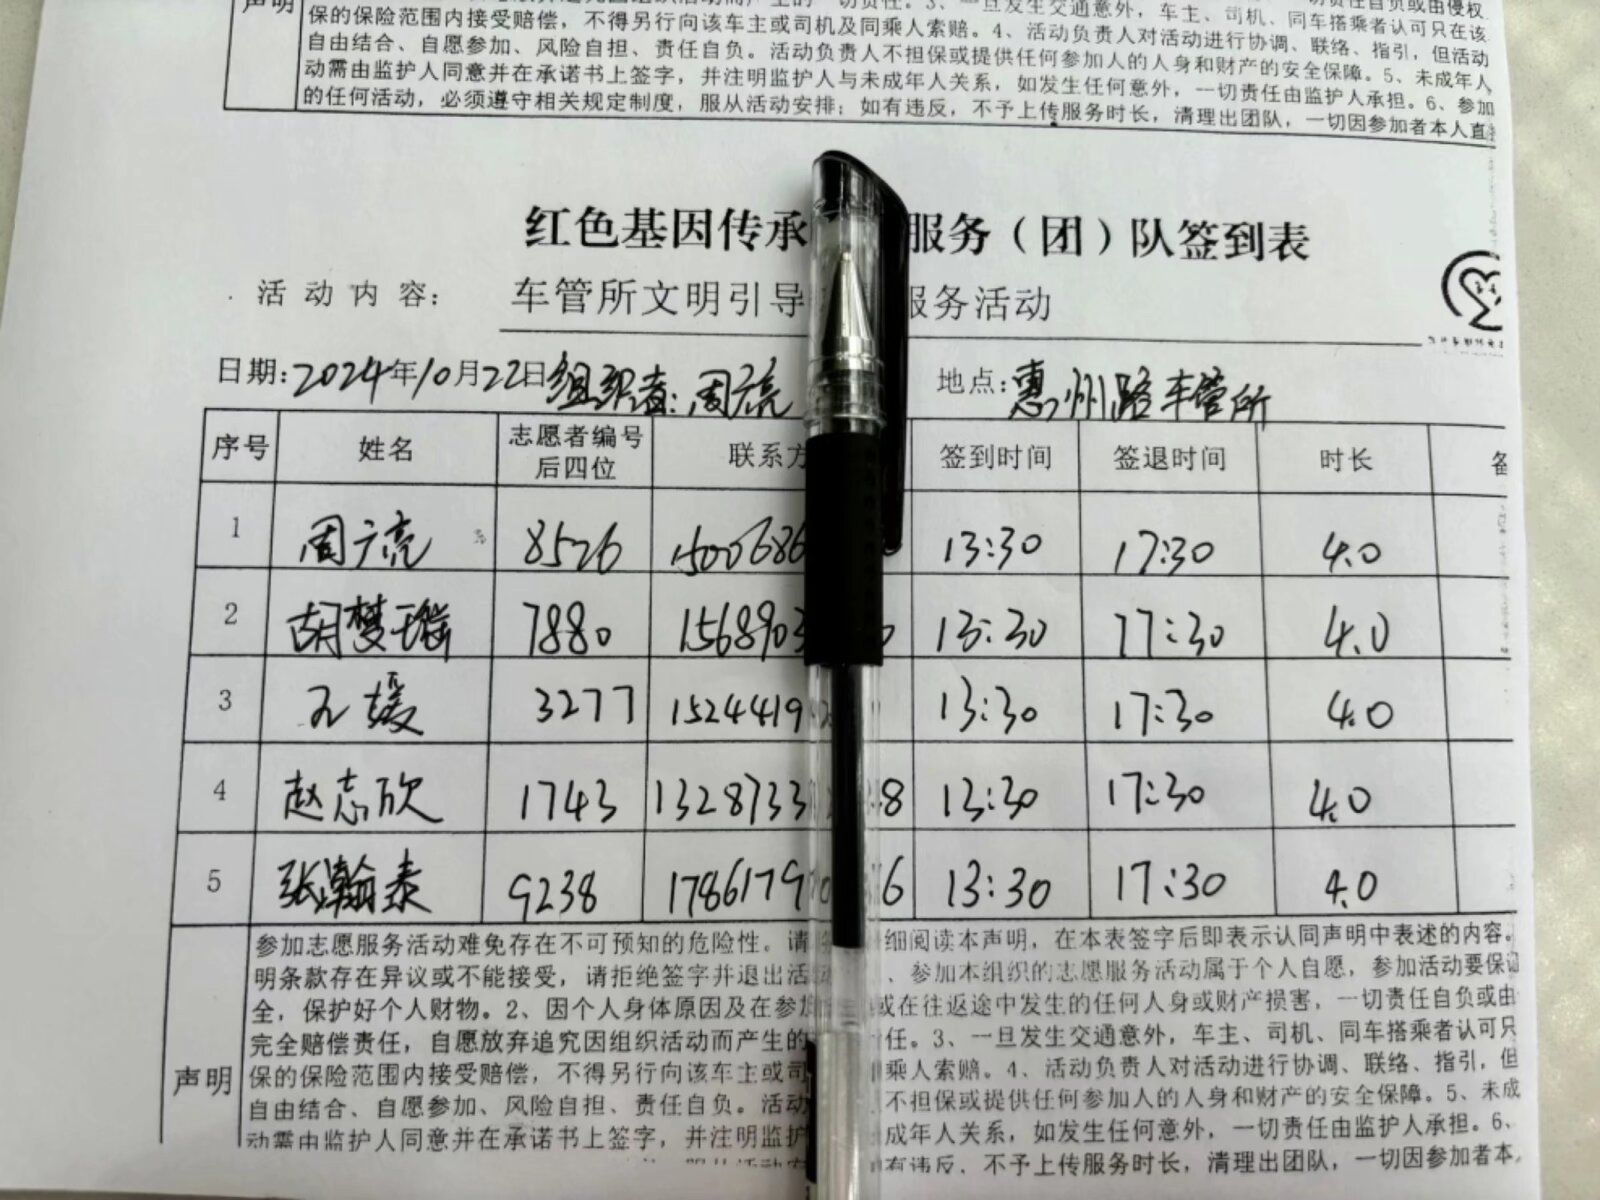 声明
保的保险范围内接受赔偿，不得另行向该车主或司机及同乘人索赔。4、活动负责人对活动进行协调、联络、指引，但活动
自由结合、自愿参加、风险自担、责任自负。活动负责人不担保或提供任何参加人的人身和财产的安全保障。5、未成年人
动需由监护人同意并在承诺书上签字，并注明监护人与未成年人关系，如发生任何意外，一切责任由监护人承担。6、参加
的任何活动，必须遵守相关规定制度，服从活动安排；如有违反，不予上传服务时长，清理出团队，一切因参加者本人直
红色基因传承 服务（团）队签到表
活动内容： 车管所文明引导 服务活动
日期：2024年10月22日 组织者：周广亮 地点：惠州路车管所
序号 姓名 志愿者编号后四位 联系方 签到时间 签退时间 时长
1 周广亮 8526 1500686 13:30 17:30 4.0
2 胡梦瑶 7880 1568903 13:30 17:30 4.0
3 孔媛 3277 15244192 13:30 17:30 4.0
4 赵志欣 1743 1328733 8 13:30 17:30 4.0
5 张瀚泰 9238 1786179 6 13:30 17:30 4.0
参加志愿服务活动难免存在不可预知的危险性。请 细阅读本声明，在本表签字后即表示认同声明中表述的内容。
明条款存在异议或不能接受，请拒绝签字并退出活 、参加本组织的志愿服务活动属于个人自愿，参加活动要保
全，保护好个人财物。2、因个人身体原因及在参加 或在往返途中发生的任何人身或财产损害，一切责任自负或由
完全赔偿责任，自愿放弃追究因组织活动而产生的 任。3、一旦发生交通意外，车主、司机、同车搭乘者认可只
声明 保的保险范围内接受赔偿，不得另行向该车主或司 乘人索赔。4、活动负责人对活动进行协调、联络、指引，但
自由结合、自愿参加、风险自担、责任自负。活动 不担保或提供任何参加人的人身和财产的安全保障。5、未成
动需由监护人同意并在承诺书上签字，并注明监护 成年人关系，如发生任何意外，一切责任由监护人承担。6、
有违反，不予上传服务时长，清理出团队，一切因参加者本